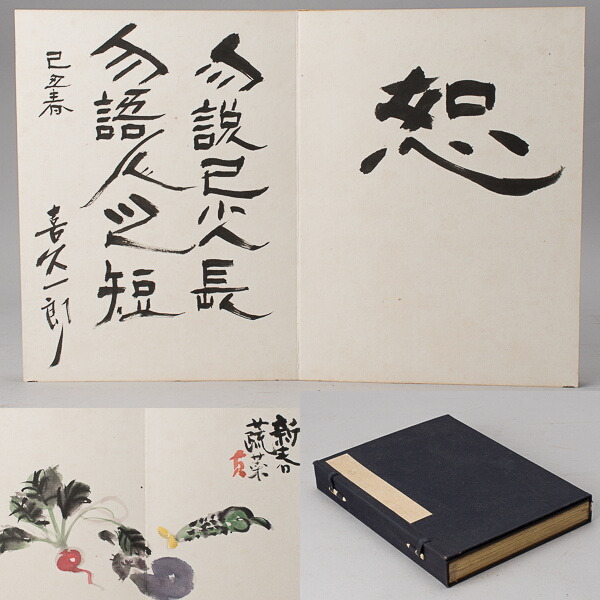 恕
勿説己之長
勿語人之短
己丑春
喜久一郎
新春
蔬菜